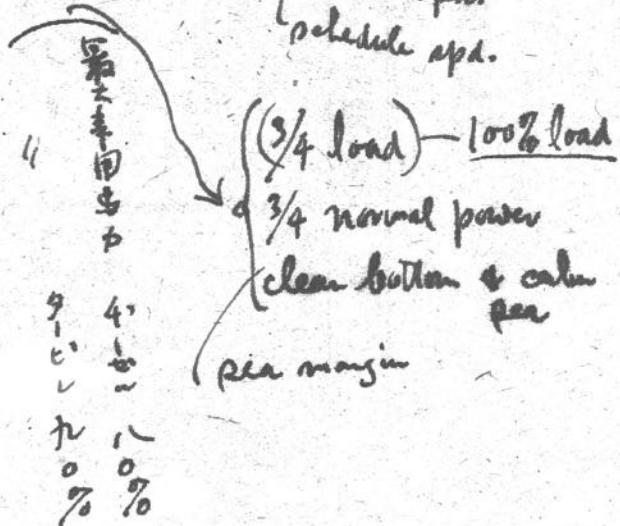 schedule spd.
(3/4 load) — 100% load
3/4 normal power
clean bottom & calm
sea
sea margin
〃
ヂーゼル 八〇%
タービン 九〇%